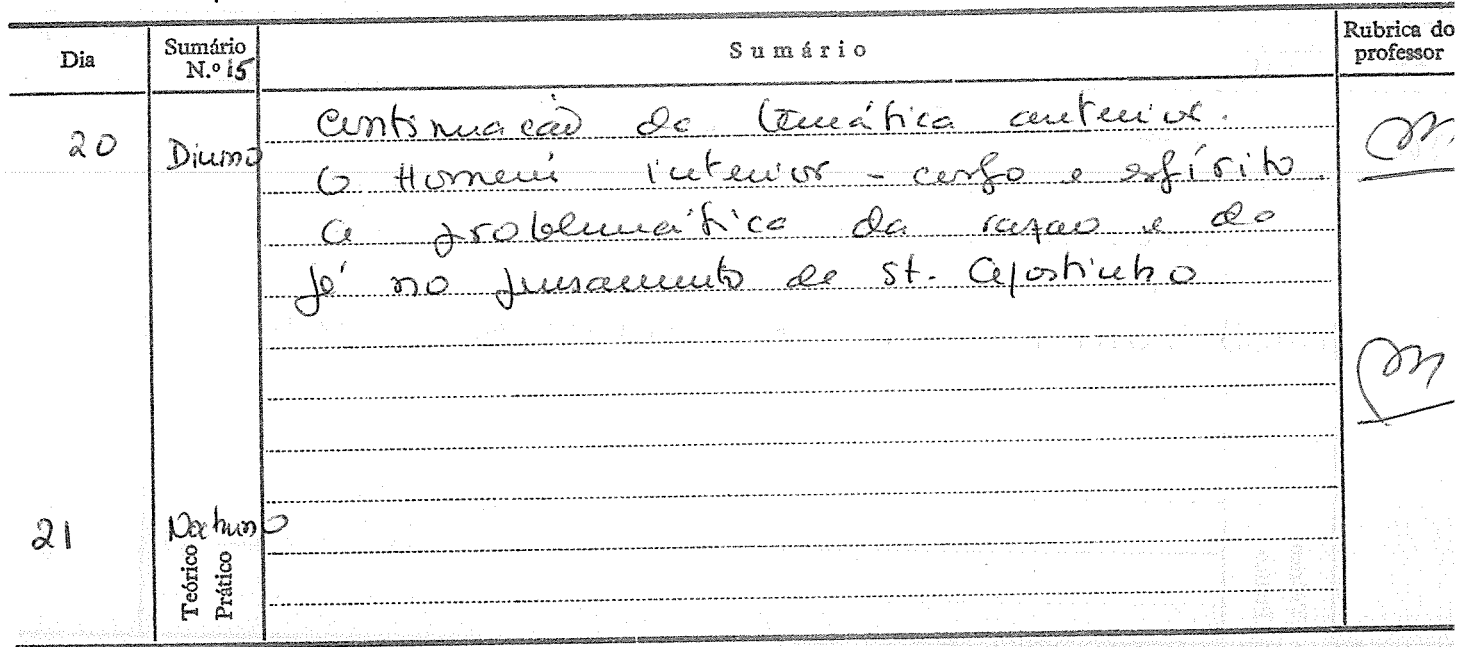 Dia
Sumário N.º 15
Sumário
Rubrica do professor
20
Diurno
Continuação da temática anterior.
O Homem interior - corpo e espírito.
A problemática da razão e da
fé no pensamento de St. Agostinho
21
Nocturno
Teórico
Prático